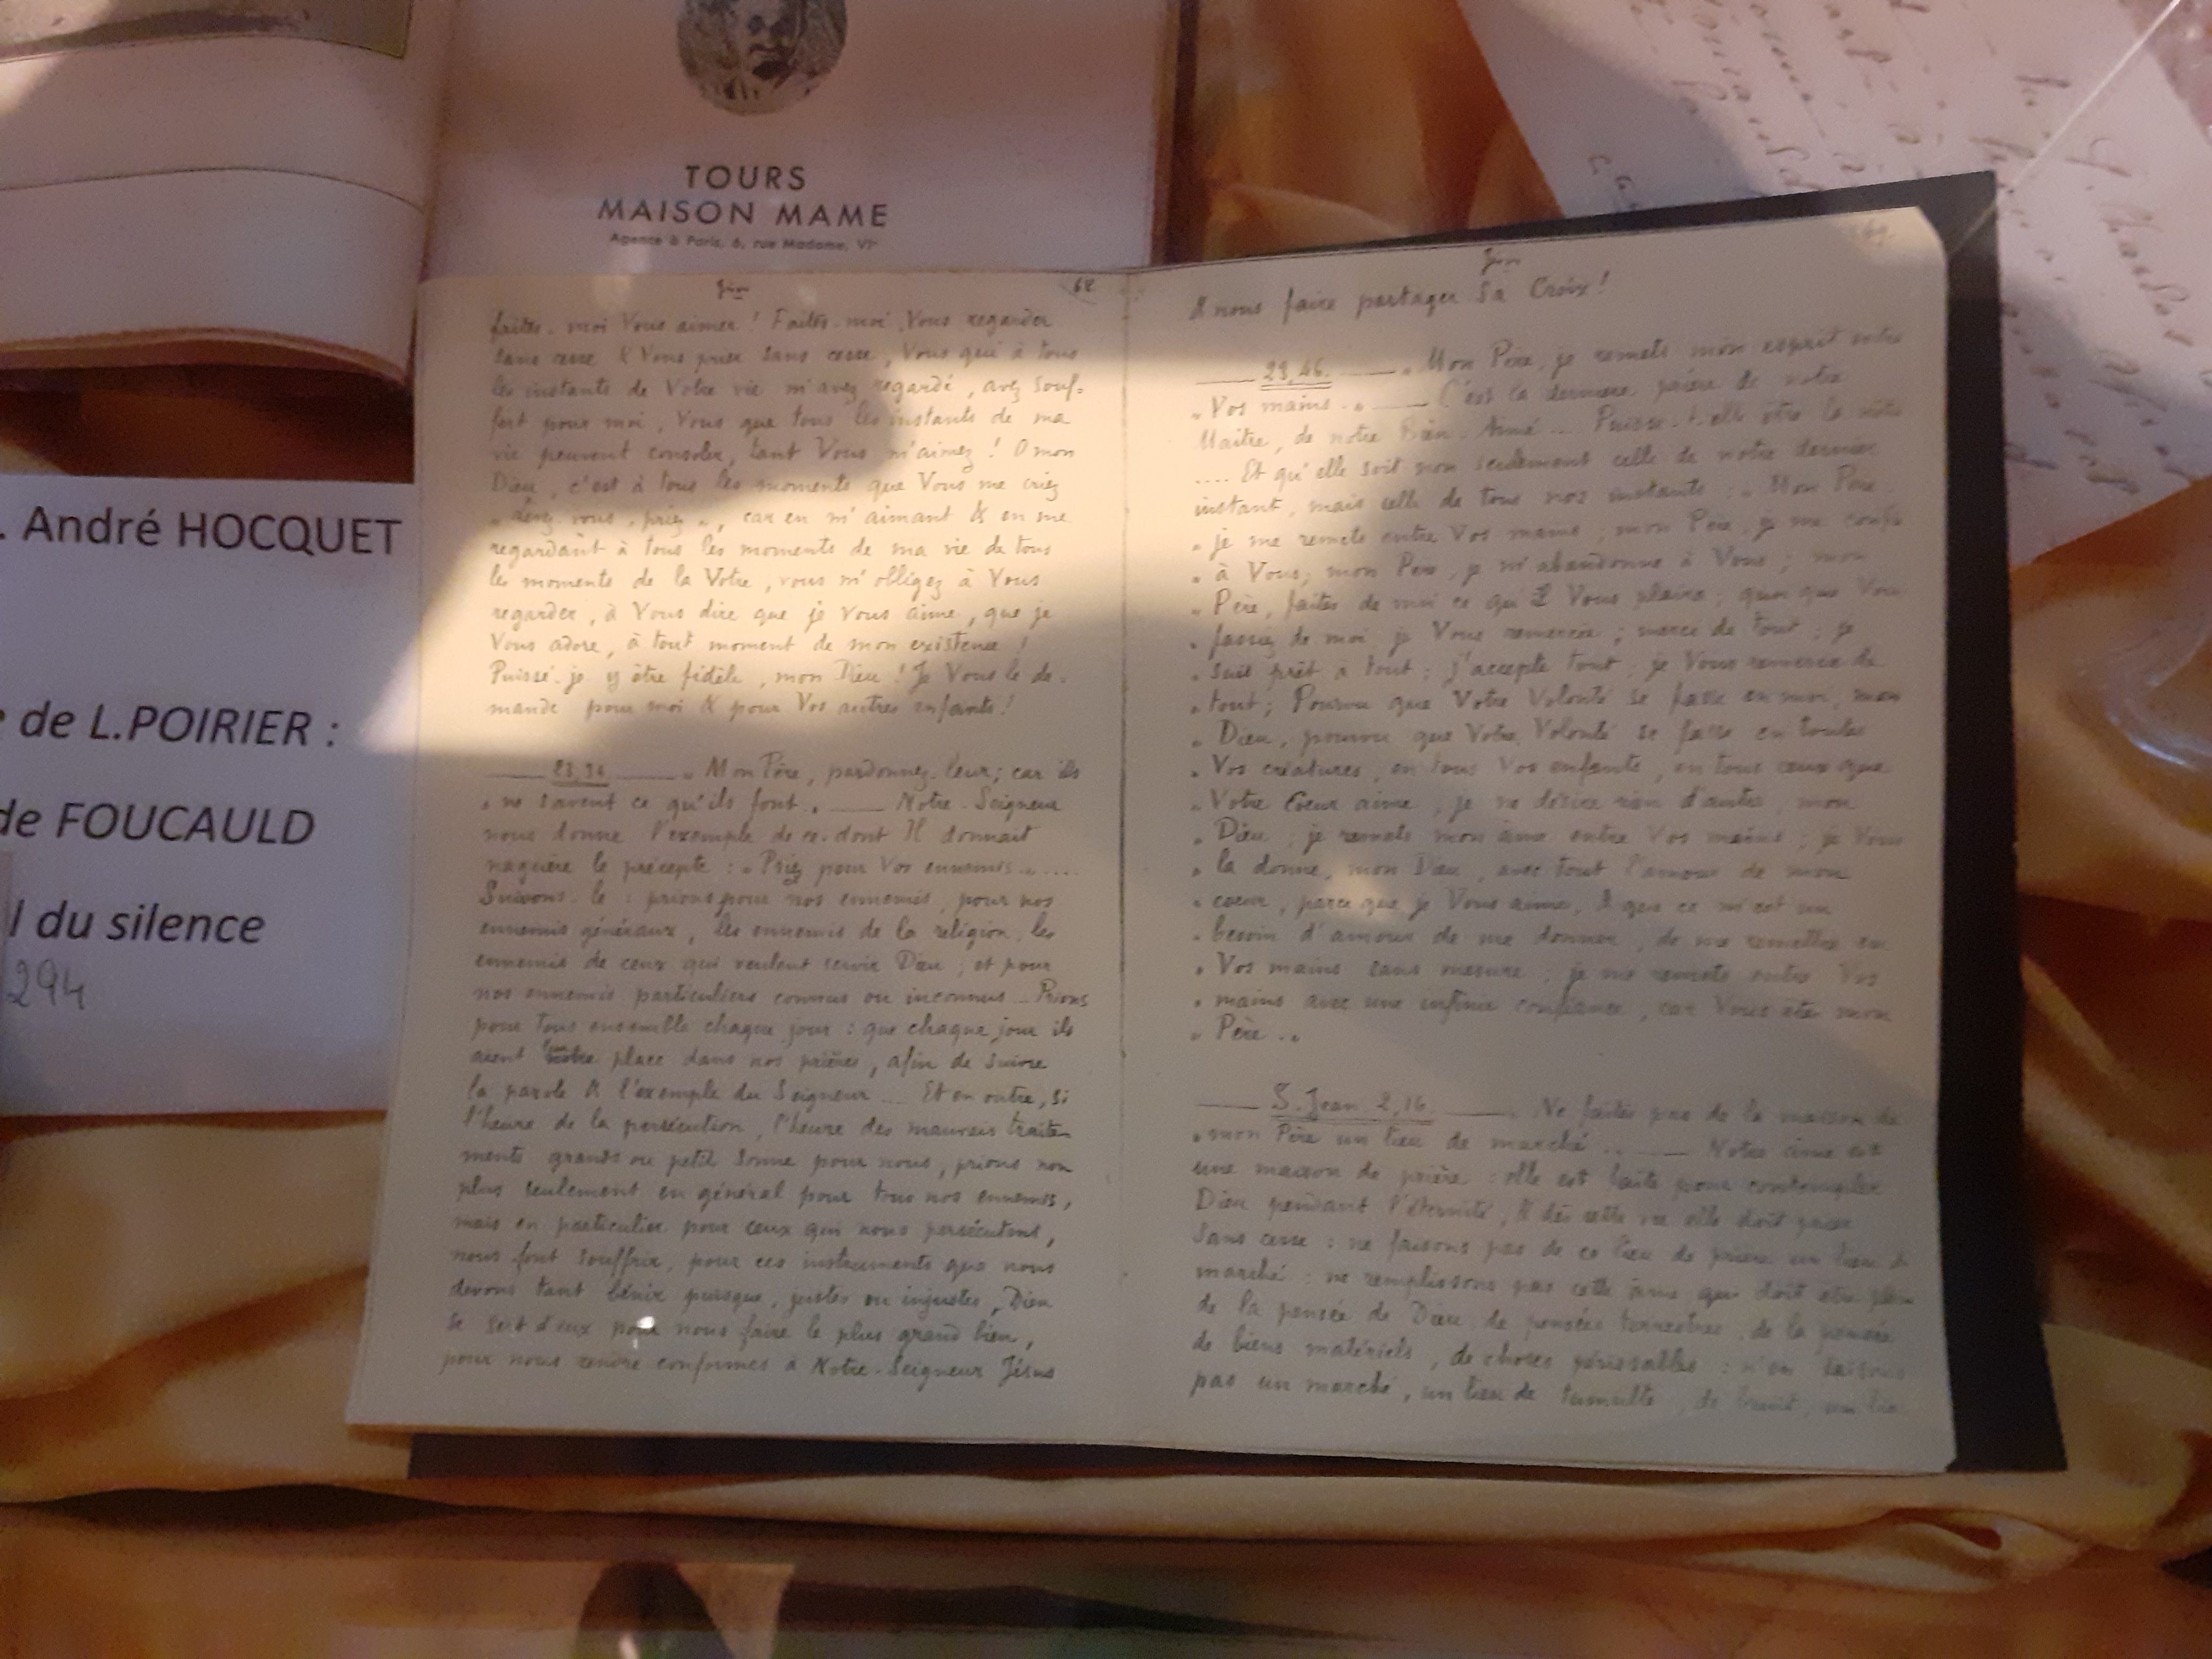 TOURS
MAISON MAME
Agence à Paris, 6, rue Madame, VIe
. André HOCQUET
de L.POIRIER :
de FOUCAULD
l du silence
294
68
faites-moi Vous aimer ! Faites-moi Vous regarder
sans cesse & Vous prier sans cesse, Vous qui à tous
les instants de Votre vie m'avez regardé, avez souf-
fert pour moi, Vous que tous les instants de ma
vie peuvent consoler, tant Vous m'aimez ! O mon
Dieu, c'est à tous les moments que Vous me criez
" levez vous, priez ", car en m'aimant & en me
regardant à tous les moments de ma vie de tous
les moments de la Votre, vous m'obligez à Vous
regarder, à Vous dire que je Vous aime, que je
Vous adore, à tout moment de mon existence !
Puissé-je y être fidèle, mon Dieu ! Je Vous le de-
mande pour moi & pour Vos autres enfants !
23,34. " Mon Père, pardonnez-leur ; car ils
" ne savent ce qu'ils font " Notre-Seigneur
nous donne l'exemple de ce dont Il donnait
naguère le précepte : " Priez pour Vos ennemis " ....
Suivons-le : prions pour nos ennemis, pour nos
ennemis généraux, les ennemis de la religion, les
ennemis de ceux qui veulent servir Dieu ; et pour
nos ennemis particuliers connus ou inconnus ... Prions
pour tous ensemble chaque jour : que chaque jour ils
aient place dans nos prières, afin de suivre
la parole & l'exemple du Seigneur ... Et en outre, si
l'heure de la persécution, l'heure des mauvais traite-
ments grands ou petits sonne pour nous, prions non
plus seulement en général pour tous nos ennemis,
mais en particulier pour ceux qui nous persécutent,
nous font souffrir, pour ces instruments que nous
devons tant bénir puisque, justes ou injustes, Dieu
se sert d'eux pour nous faire le plus grand bien,
pour nous rendre conformes à Notre-Seigneur Jésus
& nous faire partager Sa Croix !
23,46. " Mon Père, je remets mon esprit entre
" Vos mains. " C'est la dernière prière de notre
Maître, de notre Bien-Aimé ... Puisse-t-elle être la nôtre
.... Et qu'elle soit non seulement celle de notre dernier
instant, mais celle de tous nos instants : " Mon Père
" je me remets entre Vos mains ; mon Père, je me confie
" à Vous ; mon Père, je m'abandonne à Vous ; mon
" Père, faites de moi ce qu'Il Vous plaira ; quoi que Vous
" fassiez de moi, je Vous remercie ; merci de tout ; je
" suis prêt à tout ; j'accepte tout ; je Vous remercie de
" tout ; Pourvu que Votre Volonté se fasse en moi, mon
" Dieu, pourvu que Votre Volonté se fasse en toutes
" Vos créatures, en tous Vos enfants, en tous ceux que
" Votre Coeur aime, je ne désire rien d'autre, mon
" Dieu ; je remets mon âme entre Vos mains ; je Vous
" la donne, mon Dieu, avec tout l'amour de mon
" coeur, parce que je Vous aime, & que ce m'est un
" besoin d'amour de me donner, de me remettre en
" Vos mains sans mesure ; je me remets entre Vos
" mains avec une infinie confiance, car Vous êtes mon
" Père. "
S. Jean 2,16. " Ne faites pas de la maison de
" mon Père un lieu de marché " Notre âme est
une maison de prière : elle est faite pour contempler
Dieu pendant l'éternité, & dès cette vie elle doit prier
sans cesse : ne faisons pas de ce lieu de prière un lieu de
marché : ne remplissons pas cette âme qui doit être pleine
de la pensée de Dieu, de pensées terrestres, de la pensée
de biens matériels, de choses périssables : n'en faisons
pas un marché, un lieu de tumulte, de bruit, un lieu